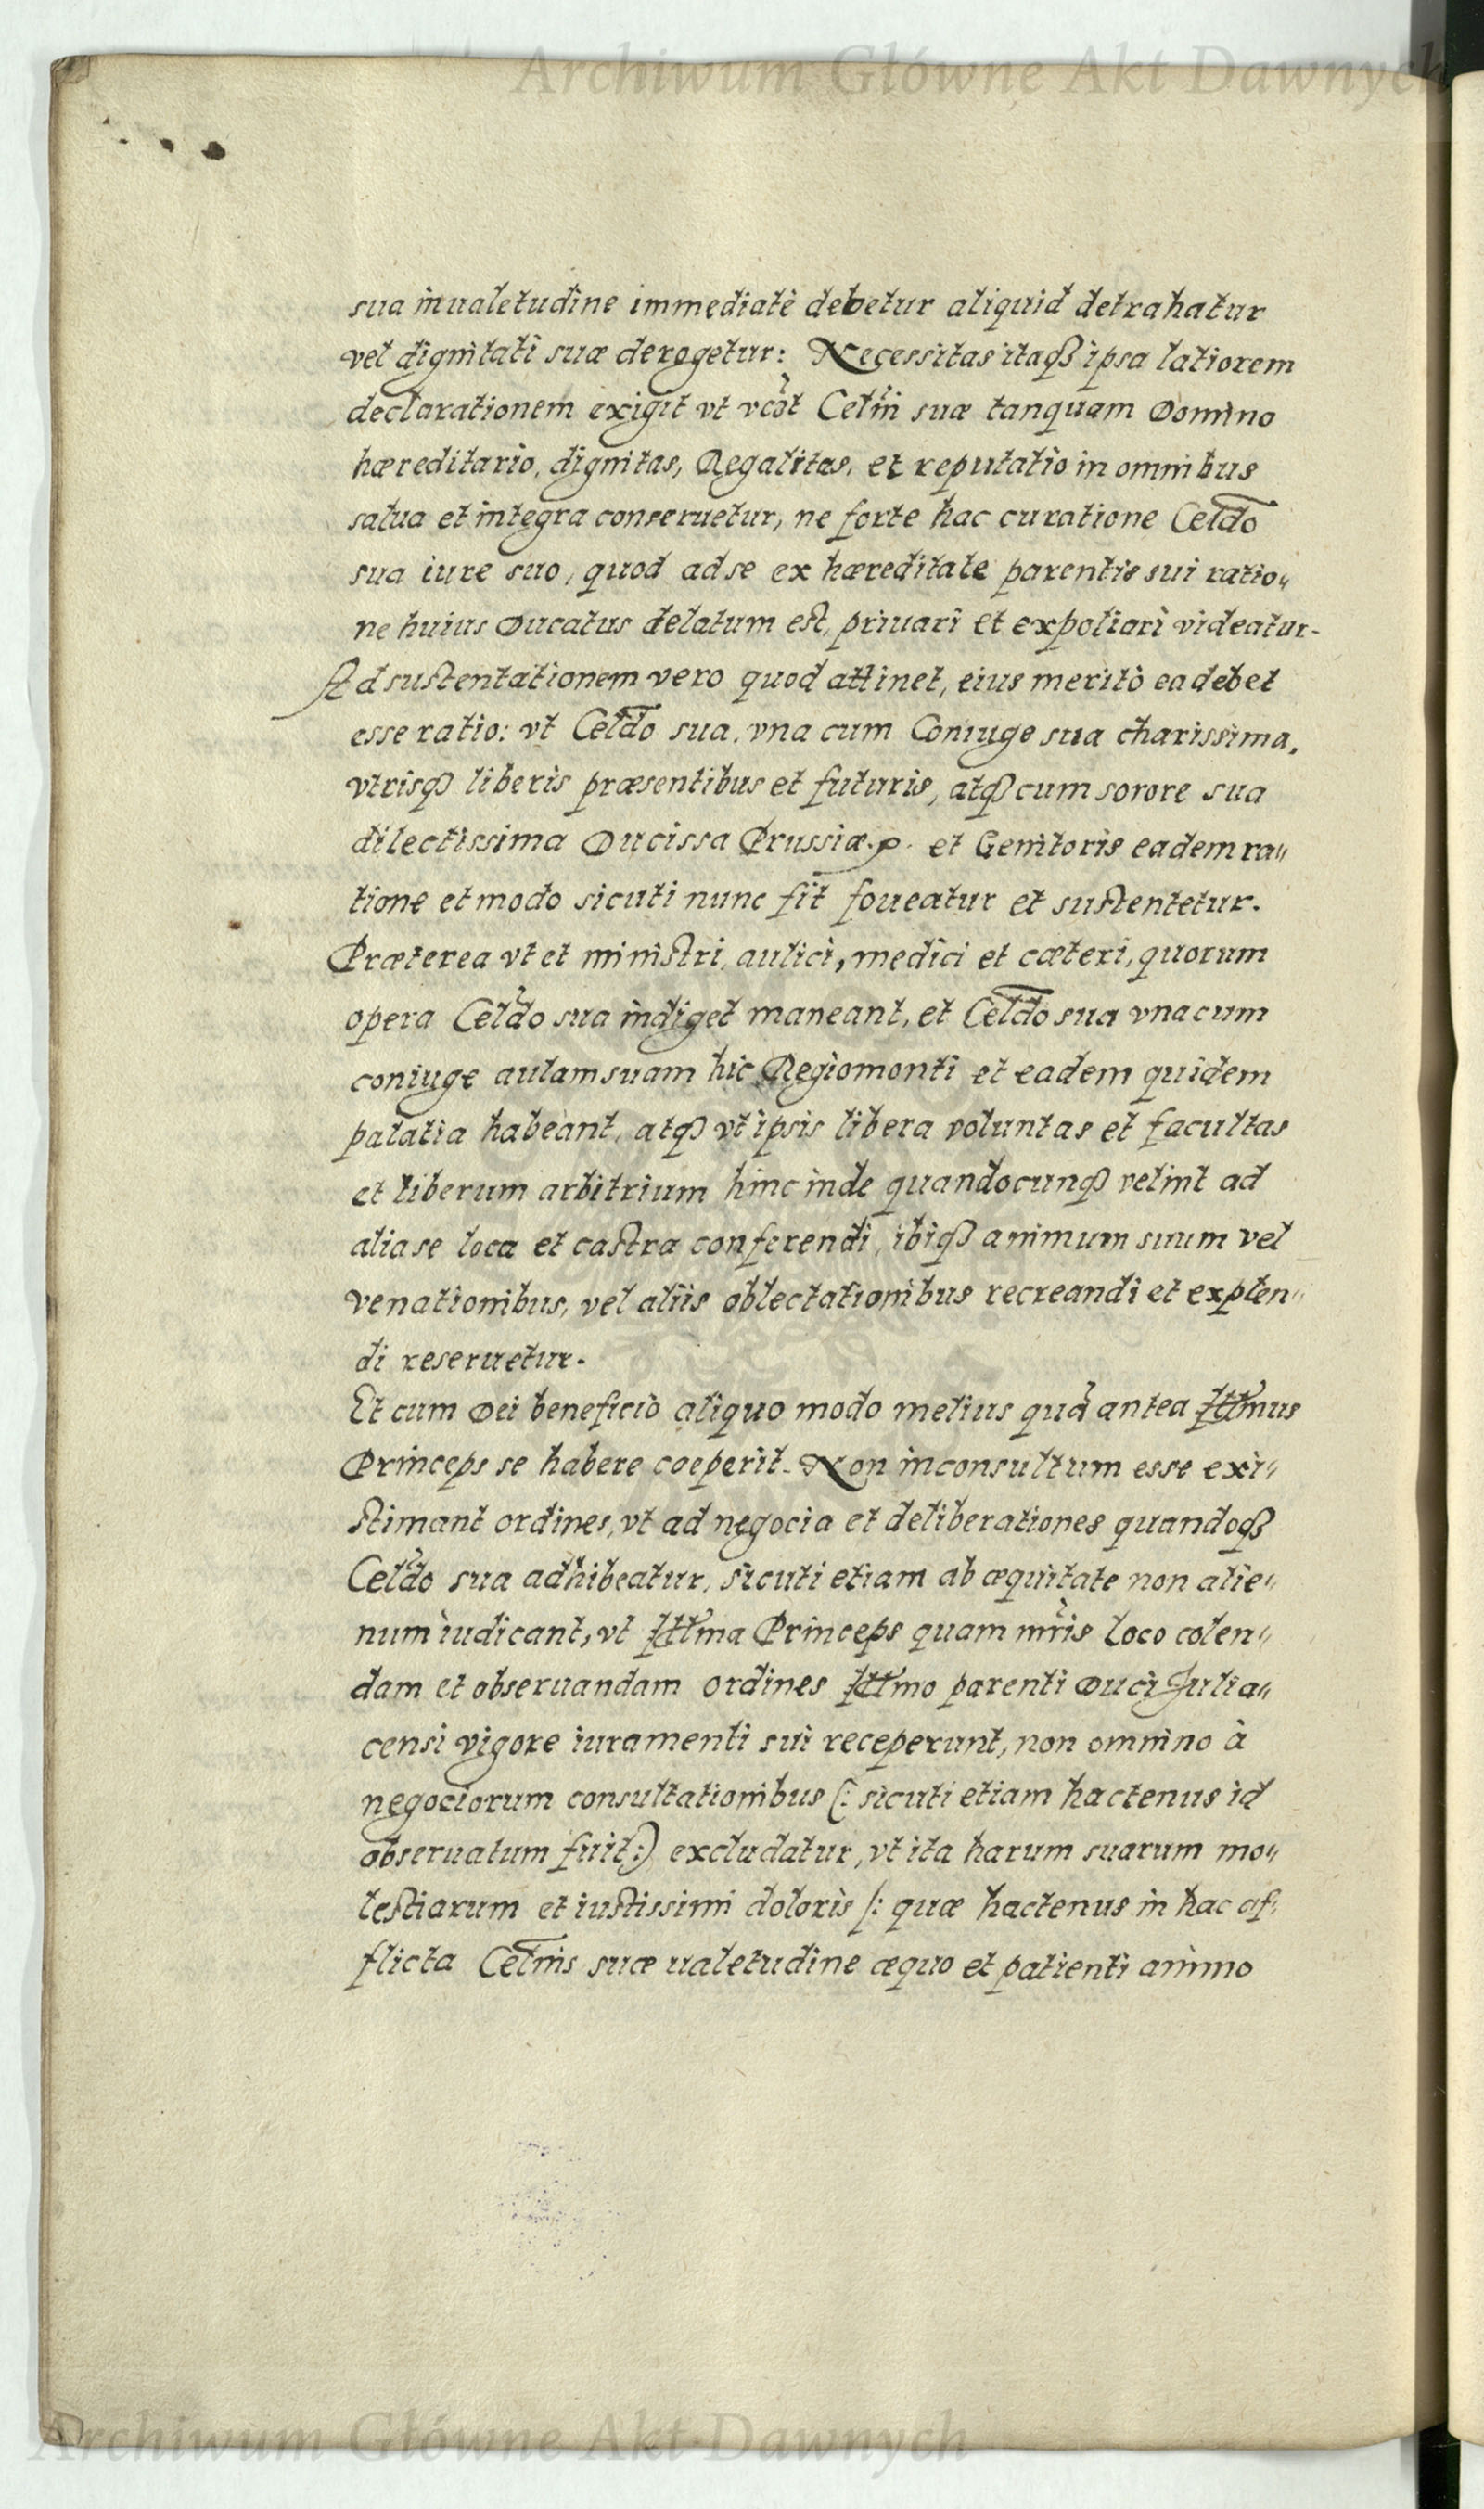 Archiwum Główne Akt Dawnych
sua inualetudine immediatè debetur aliquid detrahatur
vel dignitati suæ derogetur: Necessitas itaqȝ ipsa latiorem
declarationem exigit vt Celni suæ tanquam Domino
hæreditario, dignitas, Regalitas, et reputatio in omnibus
salua et integra conseruetur, ne forte hac curatione Celdo
sua iure suo, quod ad se ex hæreditate parentis sui ratio„
ne huius Ducatus delatum est, priuari et expoliari videatur.
Ad sustentationem vero quod attinet, eius meritò ea debet
esse ratio: vt Celdo sua. vna cum Coniuge sua charissima,
vtrisqȝ liberis præsentibus et futuris, atqȝ cum sorore sua
dilectissima Ducissa Prussiæ. p. et Genitoris eadem ra„
tione et modo sicuti nunc fit foueatur et sustentetur.
Præterea vt et ministri, aulici, medici et cæteri, quorum
opera Celdo sua indiget maneant, et Celdo sua vna cum
coniuge aulam suam hic Regiomonti et eadem quidem
palatia habeant, atqȝ vt ipsis libera voluntas et facultas
et liberum arbitrium hinc inde quandocunqȝ velint ad
alia se loca et castra conferendi, ibiqȝ animum suum vel
venationibus, vel aliis oblectationibus recreandi et explen„
di reseruetur.
Et cum Dei beneficio aliquo modo melius quà antea Illmus
Princeps se habere coeperit. Non inconsultum esse exi„
stimant ordines, vt ad negocia et deliberationes quandoqȝ
Celdo sua adhibeatur, sicuti etiam ab æquitate non alie„
num iudicant, vt Illma Princeps quam mris loco colen„
dam et obseruandam ordines Illmo parenti Duci Julia„
censi vigore iuramenti sui receperunt, non omnino à
negociorum consultationibus (: sicuti etiam hactenus id
obseruatum fuit:) excludatur, vt ita harum suarum mo„
lestiarum et iustissimi doloris /: quæ hactenus in hac af„
flicta Celnis suæ ualetudine æquo et patienti animo
Archiwum Główne Akt Dawnych